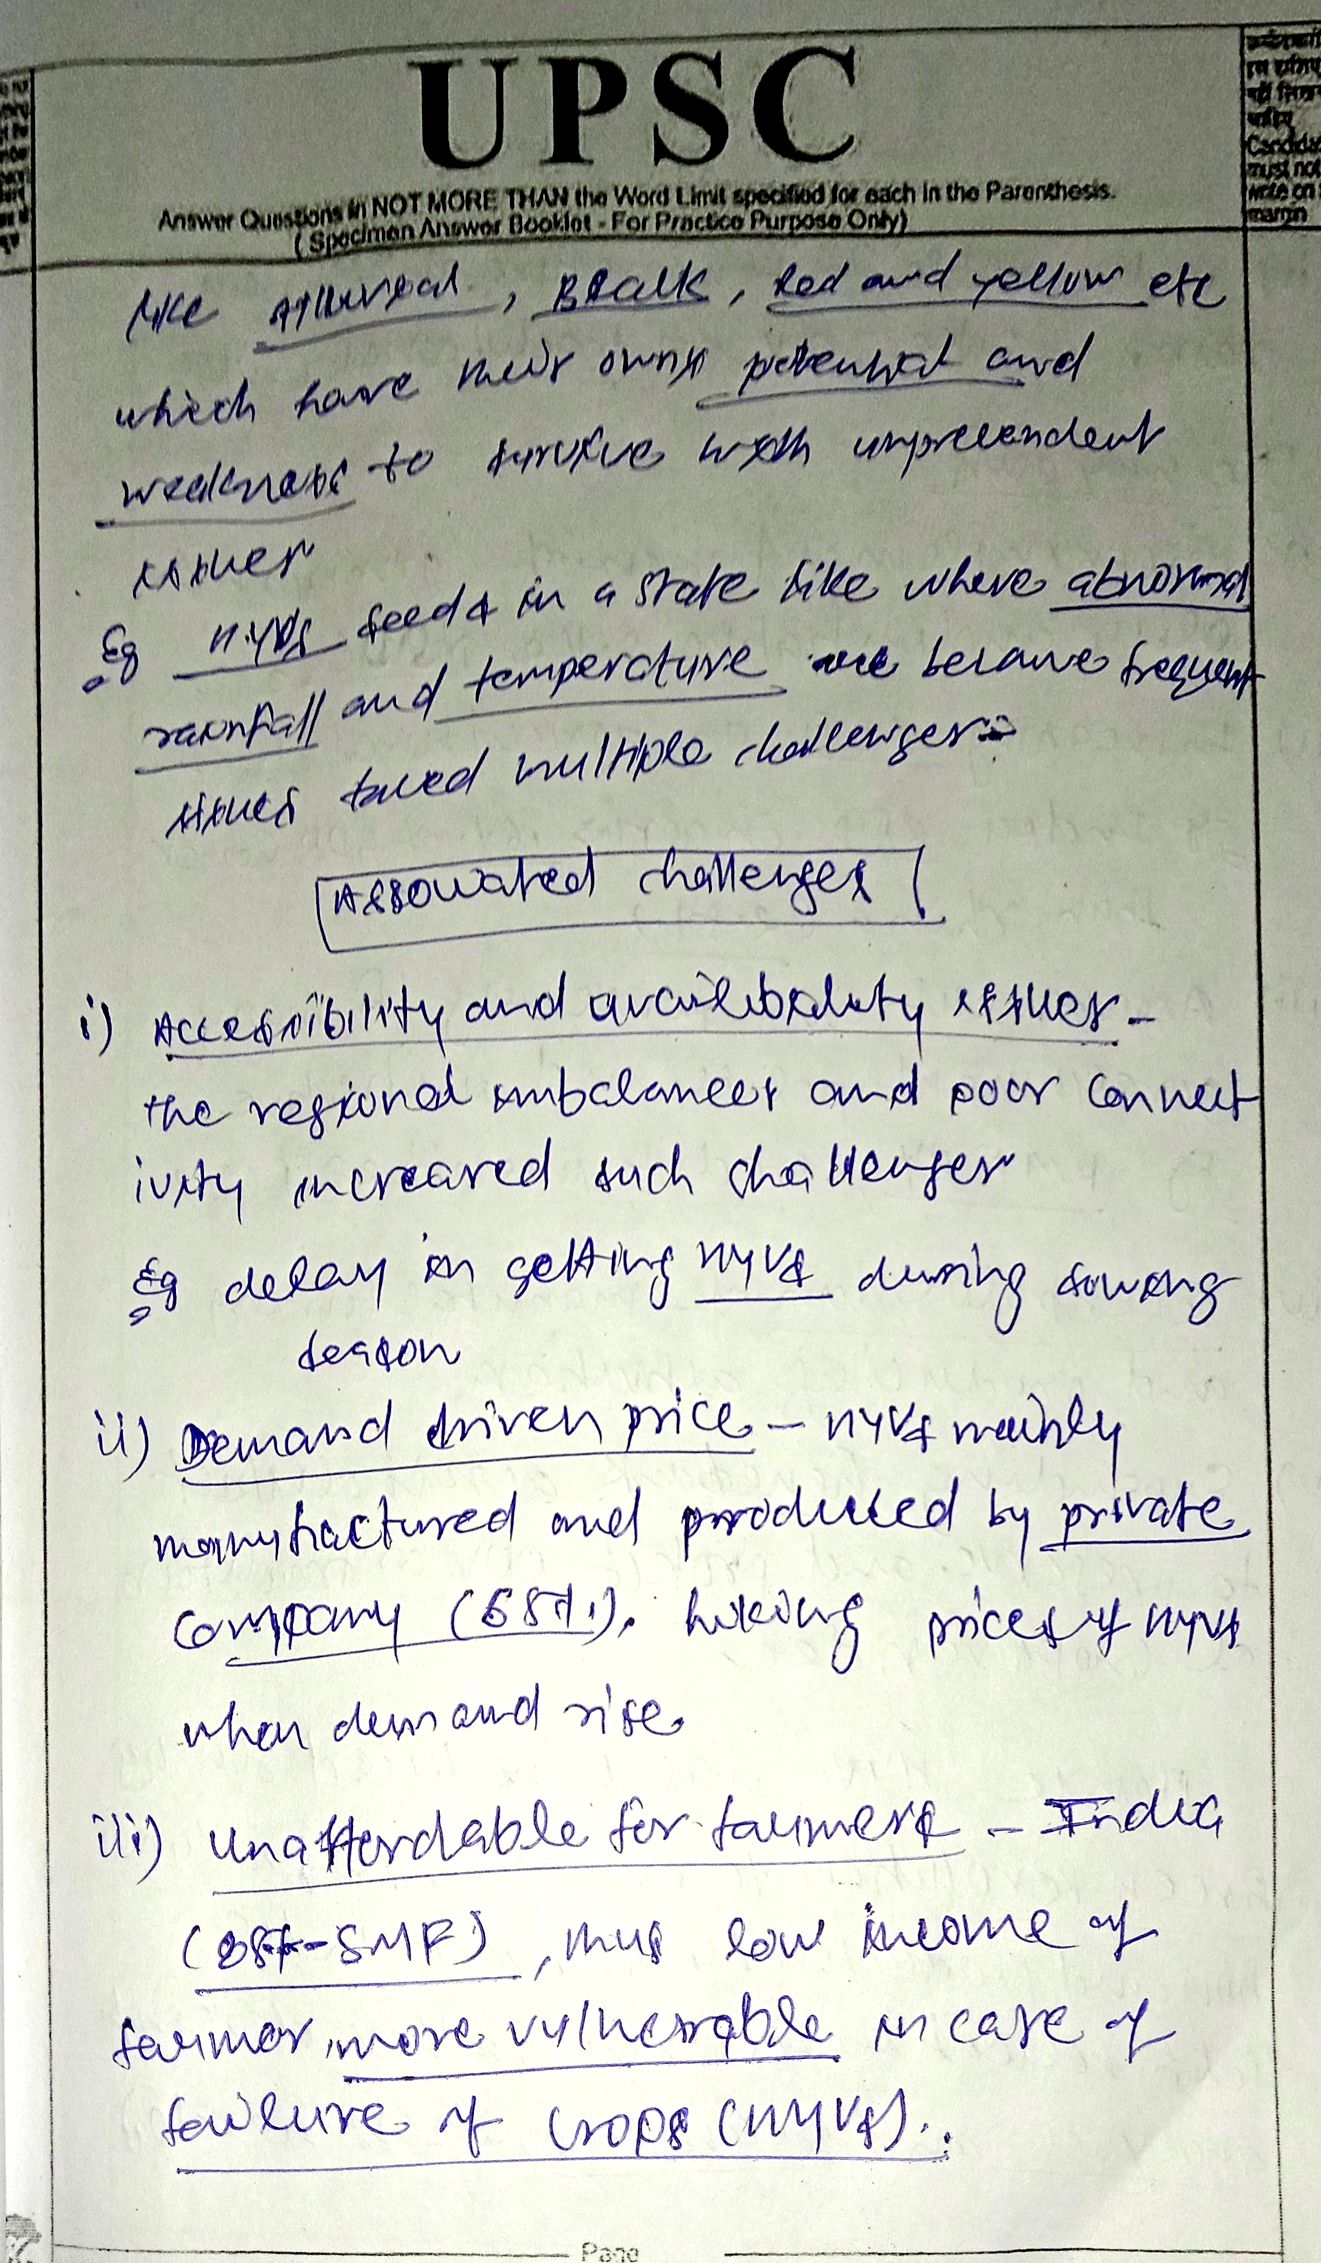 UPSC
Answer Questions in NOT MORE THAN the Word Limit specified for each in the Parenthesis.
( Specimen Answer Booklet - For Practice Purpose Only)
Candidat
must not
write on
margin
like Alluvial, Black, Red and yellow etc
which have their owns potential and
weakness to survive with unprecendent
issues
Eg HYVs seeds in a state like where abnormal
rainfall and temperature are became frequent
issues faced multiple challenges
Associated challenges
i) Accessibility and availibality issues -
the regional imbalances and poor connect
ivity increased such challenges
Eg delay in getting HYVs during sowing
season
ii) Demand driven price - HYVs mainly
manufactured and produced by private
company (65%). hiking prices of HYVs
when demand rise.
iii) Unaffordable for farmers - India
(85%-SMF), thus low income of
farmer, more vulnerable in case of
failure of crops (HYVs).
Page